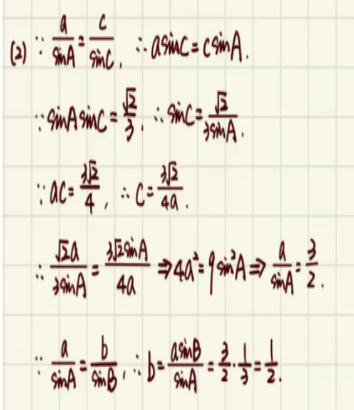 (2) ∵ a/sinA = c/sinC, ∴ asinC = csinA.
∵ sinAsinC = √2/3, ∴ sinC = √2/3sinA.
∵ ac = 3√2/4, ∴ c = 3√2/4a.
∴ √2a/3sinA = 3√2sinA/4a ⇒ 4a² = 9sin²A ⇒ a/sinA = 3/2.
∵ a/sinA = b/sinB, ∴ b = asinB/sinA = 3/2 · 1/3 = 1/2.